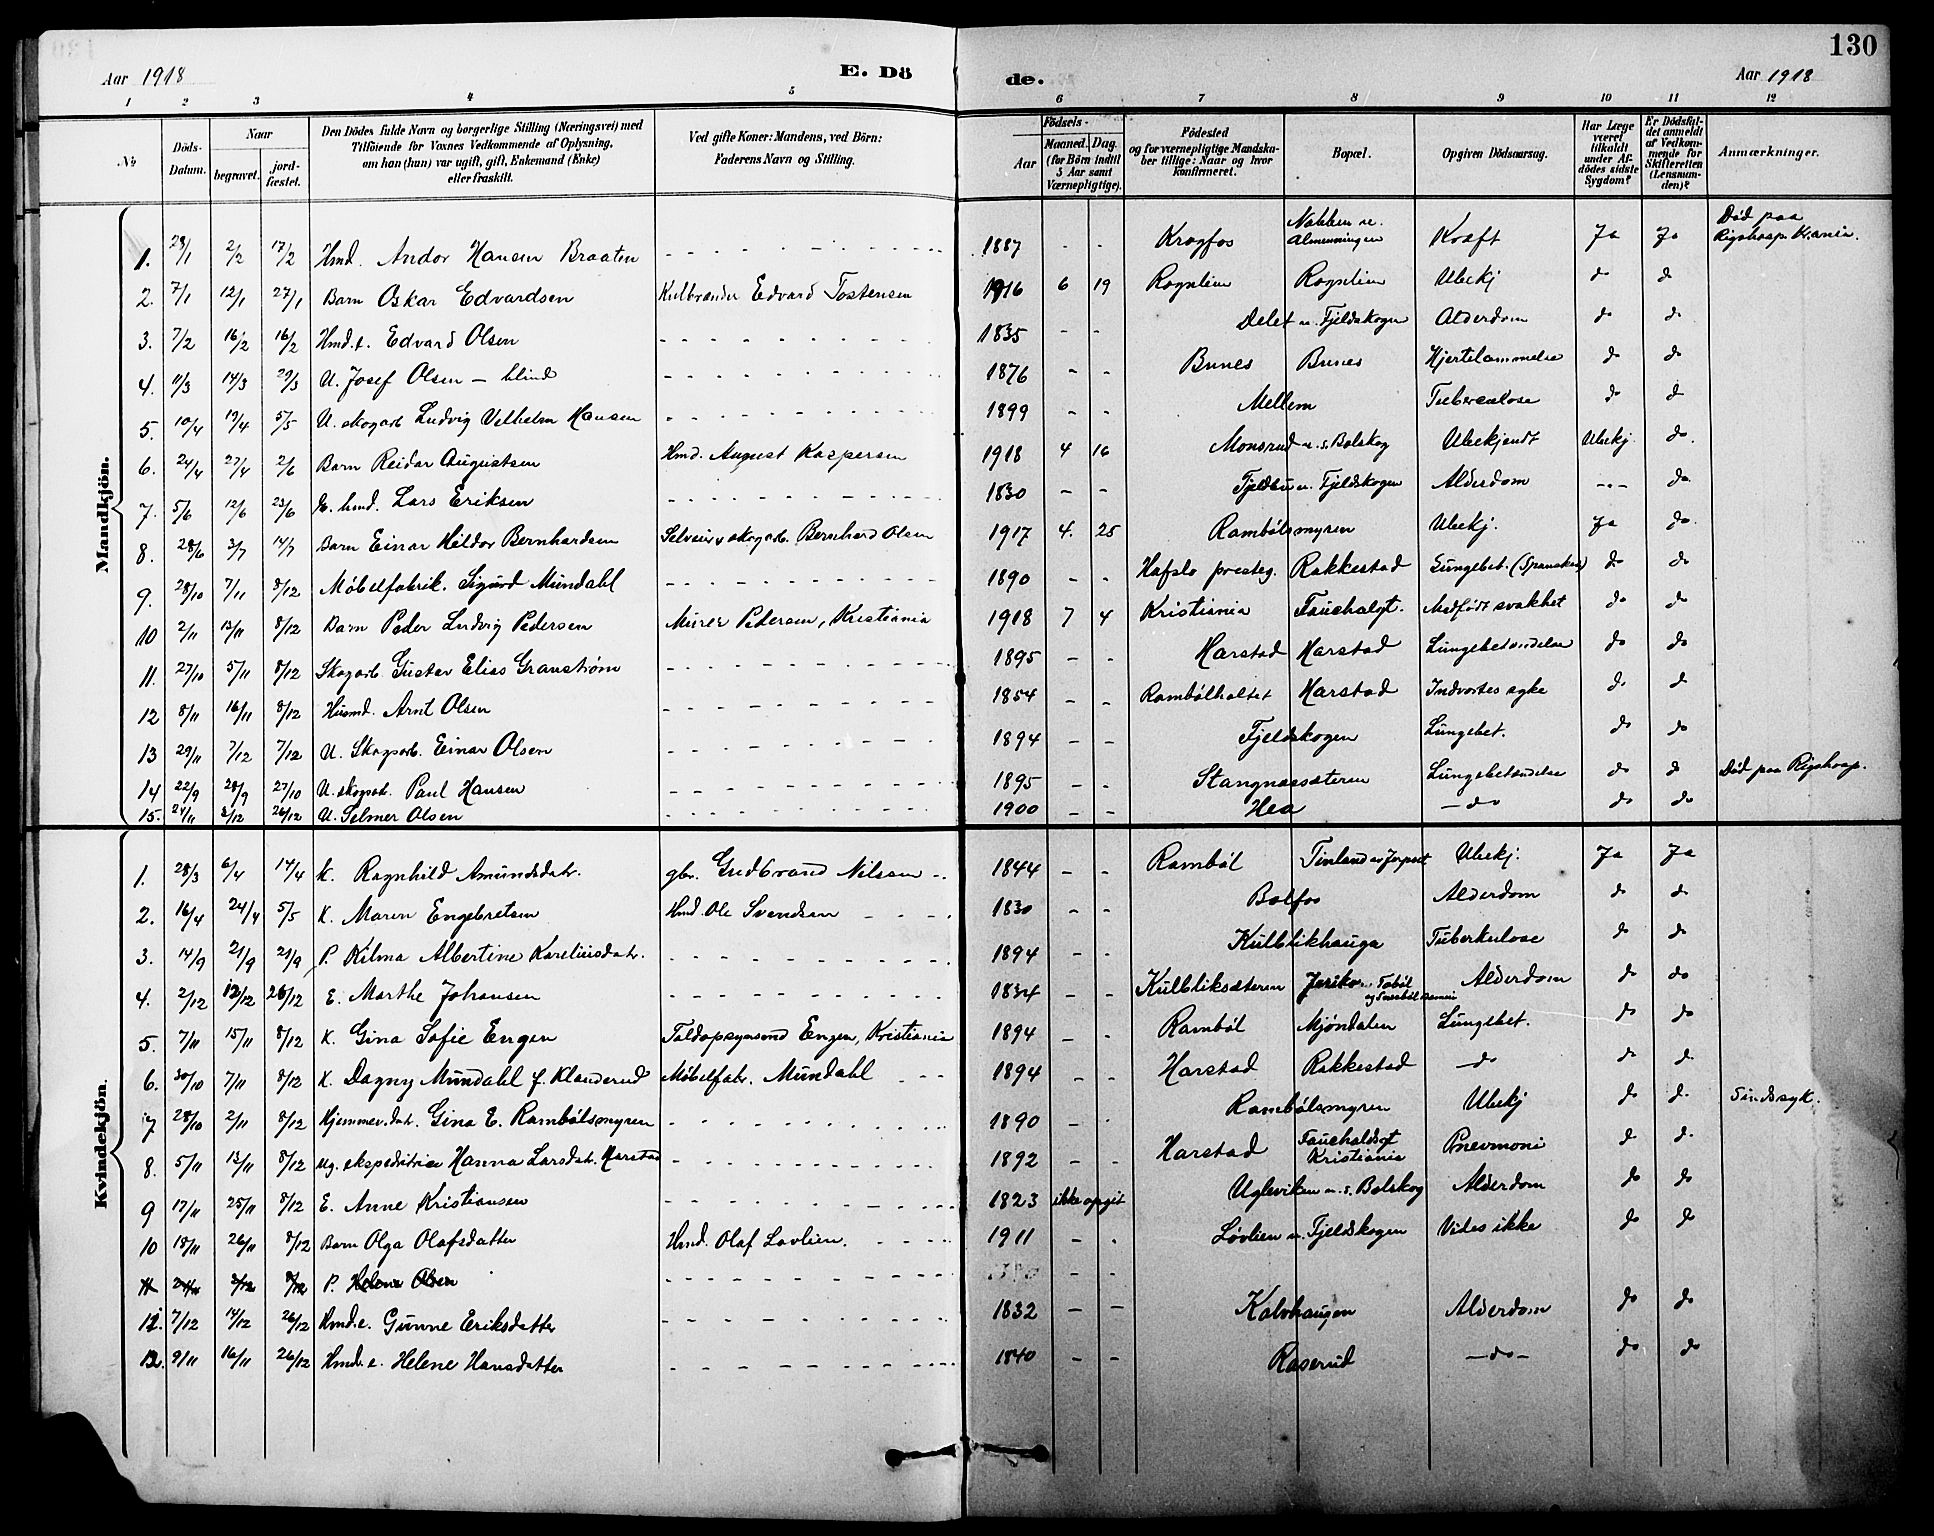 130
Aar 1918 E. Dö de. Aar 1918
1 2 3 4 5 6 7 8 9 10 11 12
No Döds-Datum. Naar begravet. jord-fæstet. Den Dödes fulde Navn og borgerlige Stilling (Næringsvei) med Tilföiende for Voxnes Vedkommende af Oplysning, om han (hun) var ugift, gift, Enkemand (Enke) eller fraskilt. Ved gifte Koner: Mandens, ved Börn: Faderens Navn og Stilling. Födsels- Aar Maaned. Dag. (for Börn indtil 5 Aar samt Værnepligtige). Födested og for værnepligtige Mandskaber tillige: Naar og hvor konfirmeret. Bopæl. Opgiven Dödsaarsag. Har Læge været tilkaldt under Afdödes sidste Sygdom? Er Dödsfaldet anmeldt af Vedkommende for Skifteretten (Lensmanden)? Anmærkninger.
Mandkjön.
1. 28/1 2/2 17/2 Hmd. Andor Hansen Braaten 1887 - - Krogfos Almenningen Kræft Ja Ja Död paa Rigshosp. Kr.ania.
2. 7/1 12/1 27/1 Barn Oskar Edvardsen Kulbrænder Edvard Tostensen 1916 6 19 Rognlien Rognlien Ubekj do d
3. 7/2 16/2 16/2 Hmd.e. Edvard Olsen 1835 - - Delet u. Fjeldskogen Alderdom do do
4. 11/3 14/3 29/3 U. Josef Olsen - blind 1876 - - Bunes Bunes Hjertelammelse do do
5. 10/4 19/4 5/5 U. skogarb Ludvig Vilhelm Hansen 1899 - - Mellem Tuberculose do d
6. 24/4 27/4 2/6 Barn Reidar Augustsen Hmd. August Kaspersen 1918 4 16 Monsrud u. s. Bolskog Ubekjendt Ubekj. do.
7. 5/6 12/6 23/6 hmd. Lars Eriksen 1830 - - Fjeldbu u. Fjeldskogen Alderdom --- do
8. 28/6 3/7 14/7 Barn Einar Hildor Bernhardsen Selveier skogarb. Bernhard Olsen 1917 4. 25 Rambölsmyren Ubekj. Ja do.
9. 28/10 7/11 8/12 Møbelfabrik. Sigurd Mundahl 1890 - - Hafslo presteg. Rakkestad Lungebet. (Spanske) do do
10 2/11 13/11 8/12 Barn Peder Ludvig Pedersen Murer Pedersen, Kristiania 1918 7 4 Kristiania Fauchalgt. Medfödt svakhet do do
11. 27/10 5/11 8/12 Skogarb Gustav Elias Granström 1895 - - Harstad Harstad Lungebetændelse do do
12 8/11 16/11 8/12 Husmd. Arnt Olsen 1854 - - Rambölholtet Harstad Indvortes syke do d
13 29/11 7/12 7/12 U. Skogarb. Einar Olsen 1894 - - Fjeldskogen Lungebet. do do
14 22/9 28/9 27/10 U. skogarb. Paul Hansen 1895 - - Stangnessæteren Lungebetændelse do d Död paa Rigshosp.
15. 24/11 2/12 26/12 U. Selmer Olsen 1900 - - Hea - do do do
Kvindekjön.
1. 28/3 6/4 14/4 K. Ragnhild Amundsdatr. gbr. Gudbrand Nilsen 1844 - - Ramböl Ubekj. Ja Ja
2. 16/4 24/4 5/5 K. Maren Engebretsen Hmd. Ole Svendsen 1830 - - Bolfos Alderdom do do
3. 14/9 21/9 29/9 P. Kilma Albertine Kareliusdatr. 1894 - - Kulblikhauga Tuberkulose do do
4. 2/12 12/12 26/12 E. Marthe Johansen 1834 - - Kulbliksæteren Alderdom do do
5. 7/11 15/11 8/12 K. Gina Sofie Engen Toldopsynsmd Engen, Kristiania 1894 - - Ramböl Mjöndalen Lungebet. do do
6. 30/10 7/11 8/12 K. Dagny Mundahl f. Klanderud Møbelfabr. Mundahl 1894 - - Harstad Rakkestad - do do do
7 28/10 2/11 8/12 Hjemmev. datr. Gina E. Rambölsmyren 1890 - - Rambölsmyren Ubekj do do. Sindssyk.
8. 5/11 13/11 8/12 ug. ekspeditrice Hanna Larsdatr. Harstad 1892 - - Harstad Fauchaldsgt Kristiania Pnevmoni do do
9 17/11 25/11 8/12 E. Anne Kristiansen 1823 ikke opgit Ugleviken u. s. Bolskog Alderdom do do
10 18/11 26/11 8/12 Barn Olga Olafsdatter Hmd. Olaf Lövlien. 1911 - - Lövlien u. Fjeldskogen Vides ikke do do
11 24/11 2/12 8/12 P. Helene Olsen - -
12. 7/12 14/12 26/12 Hmd.e. Gunne Eriksdatter 1832 - - Kalvhaugen Alderdom do do
12. 9/11 16/11 26/12 Hmd.e. Helene Hansdatter 1840 - - Raserud - do - do do